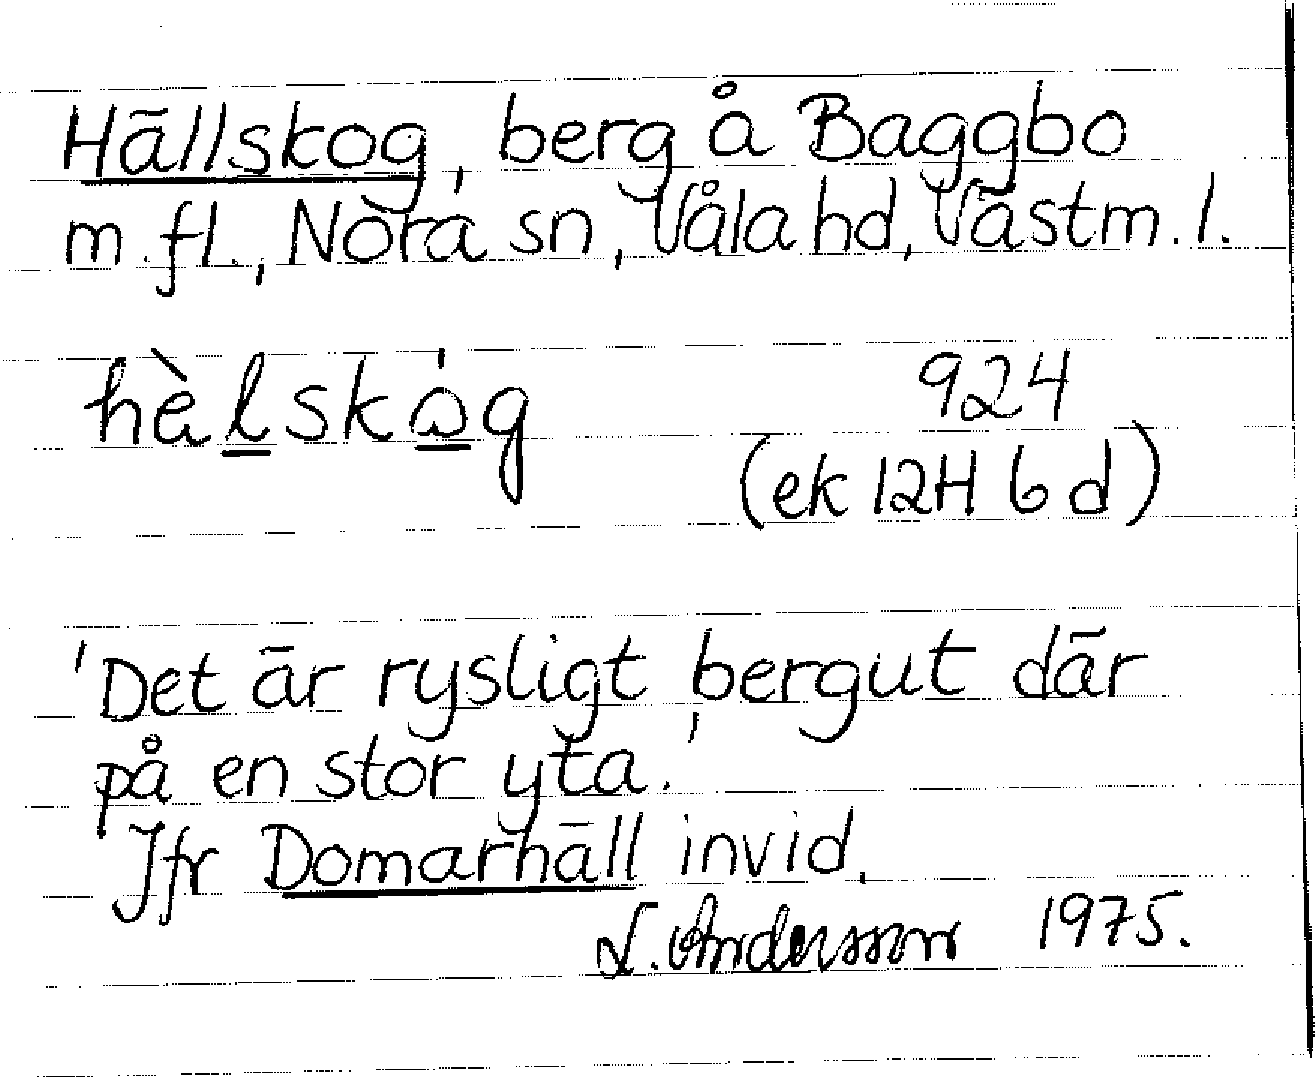 Hällskog, berg å Baggbo
m.fl., Nora sn, Våla hd, Västm. l.
hèlskóg 924
(ek 12H 6d)
'Det är rysligt bergut där
på en stor yta.'
Jfr Domarhäll invid.
L. Andersson 1975.